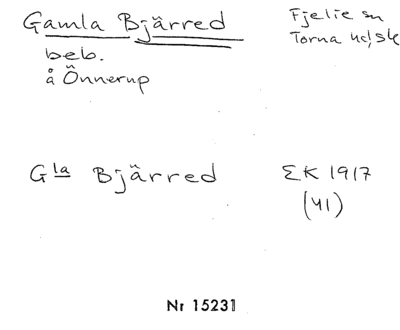 Gamla Bjärred
Fjelie sn
Torna hd, Sk
beb.
å Önnerup
Gla Bjärred
EK 1917
(41)
Nr 15231